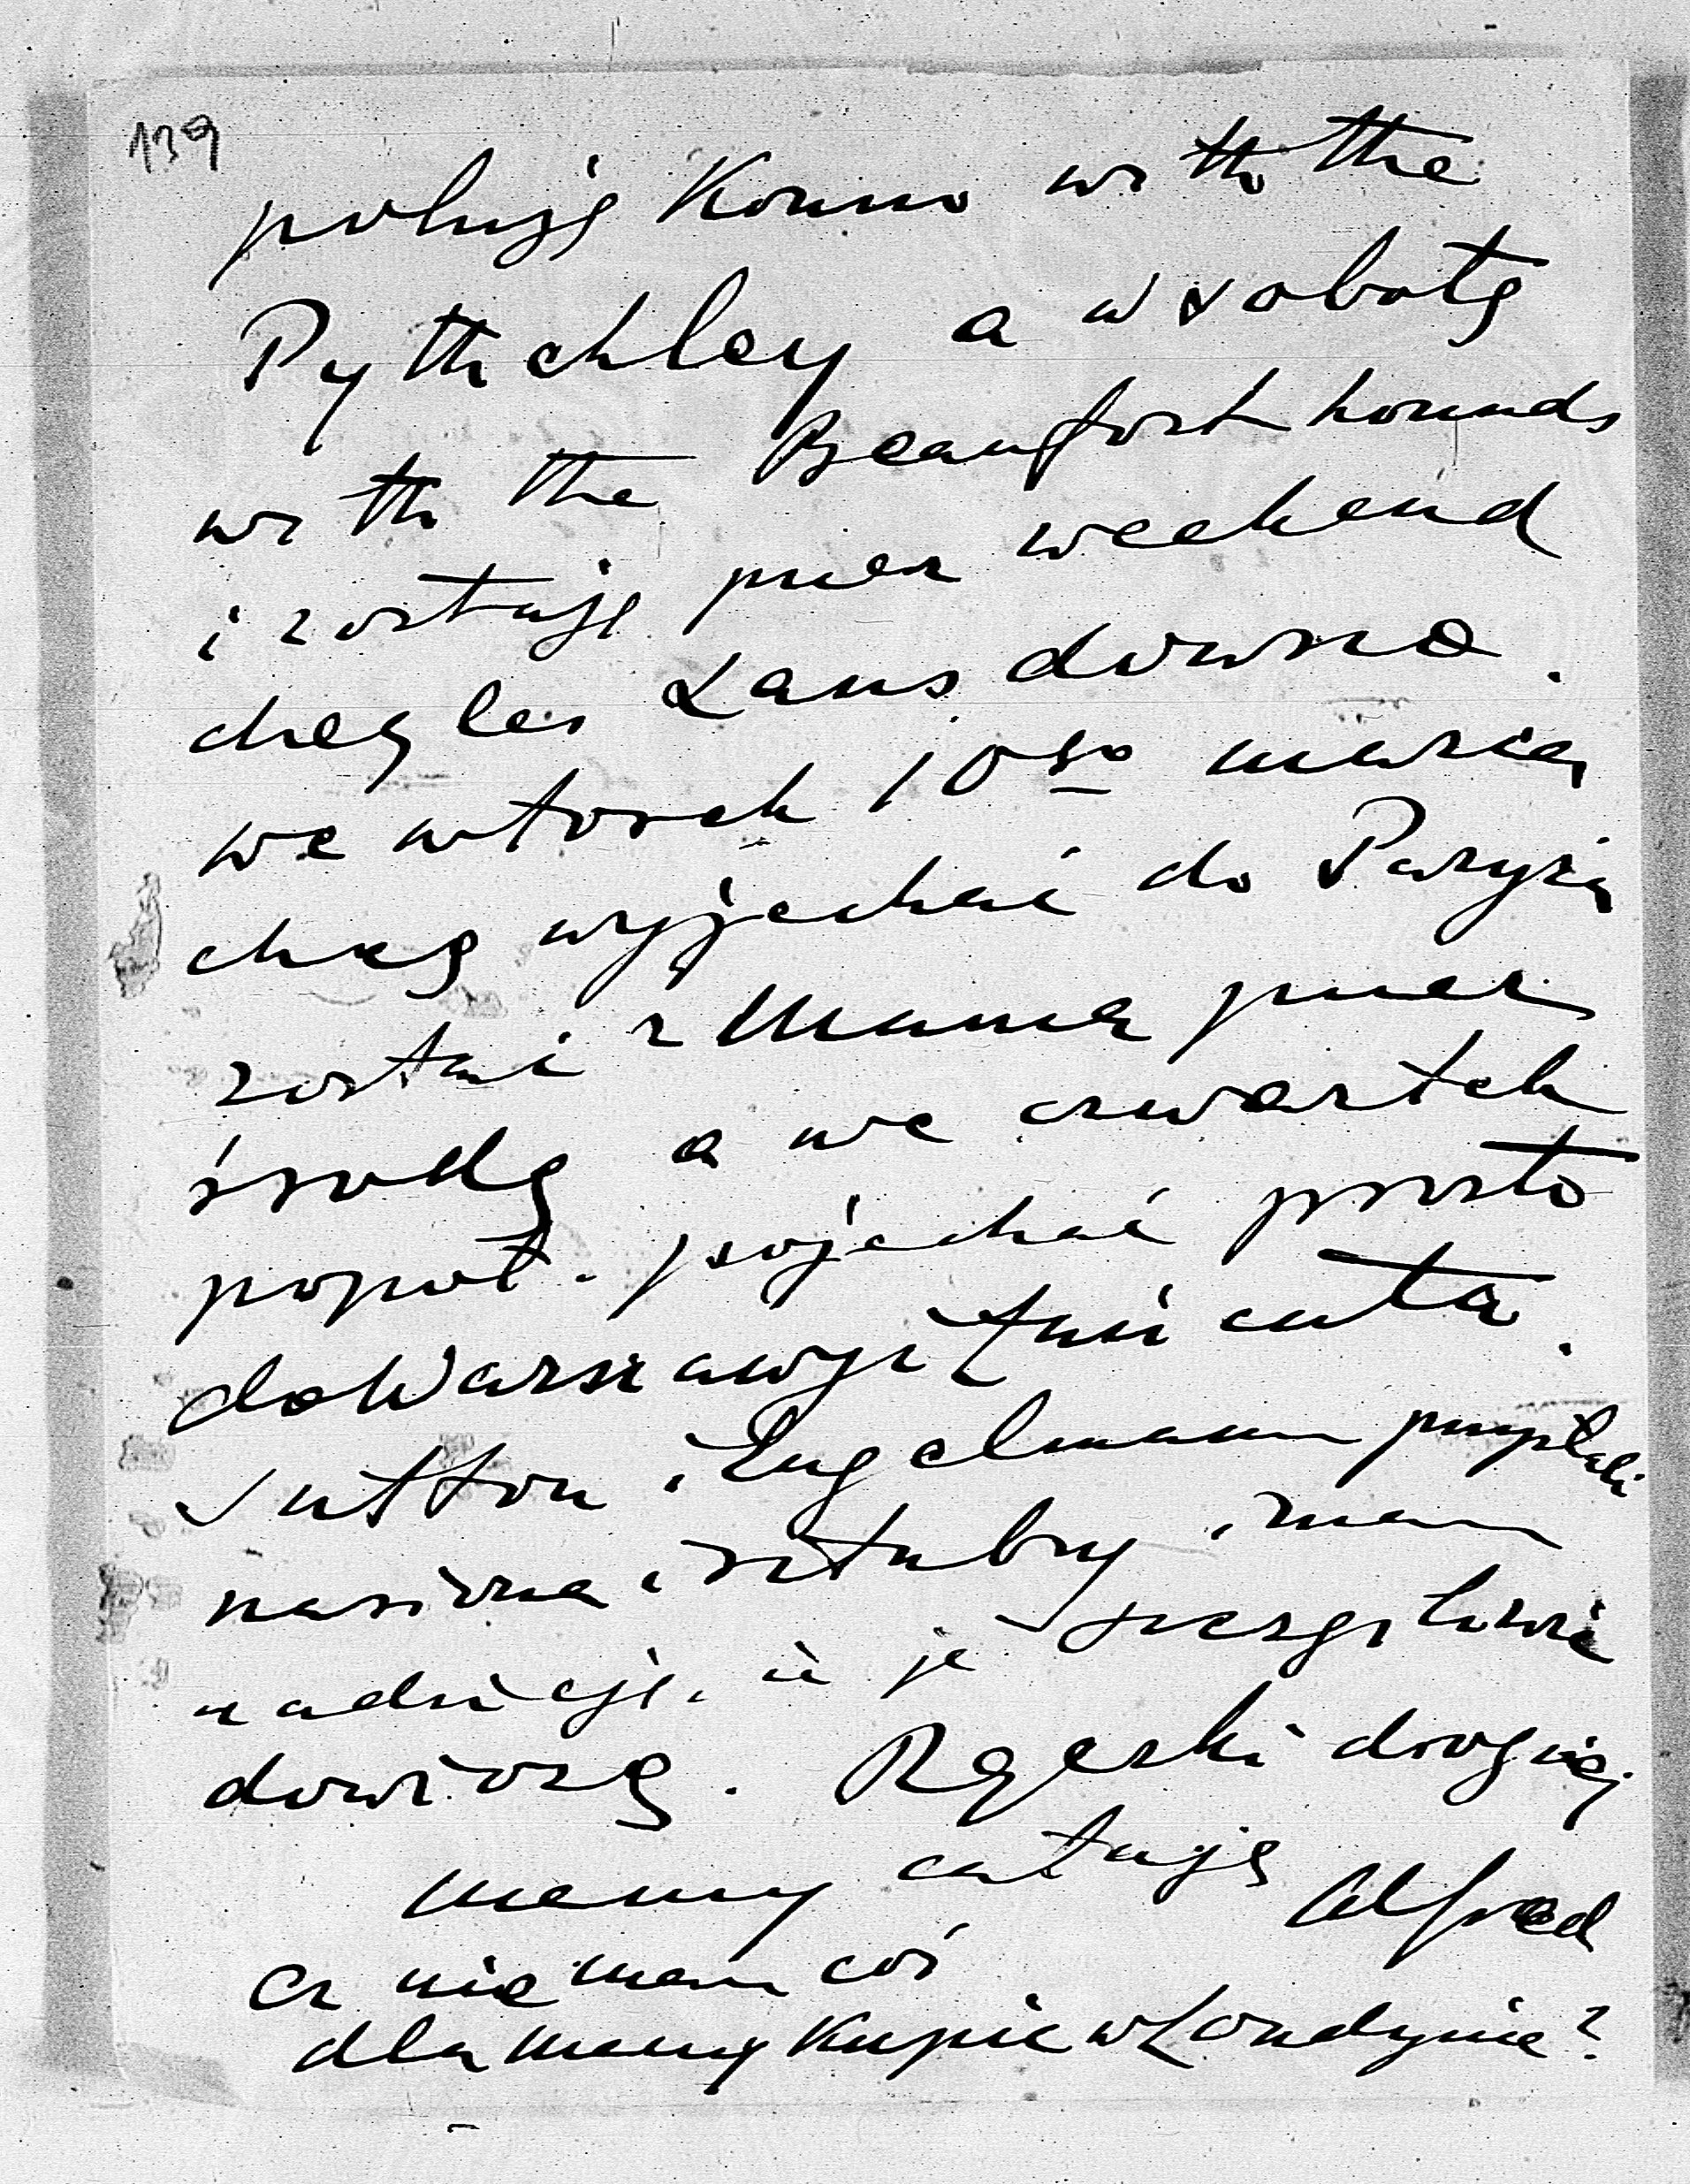 139
poluję konno with the
Pytchley a w sobotę
with the Beaufort hounds
i zostaję przez weekend
chez les Lansdowne.
we wtorek 10go marca
chcę wyjechać do Paryża
zostać z Mamą przez
środę a we czwartek
popoł. pojechać prosto
do Warszawy i Łańcuta.
Sutton i Engelmann przysłali
nasiona i sztubry i mam
nadzieję, że je szczęśliwie
dowiozę. Rączki drogiej
Mamy całuję Alfred
Cz nie mam coś
dla Mamy kupić w Londynie?